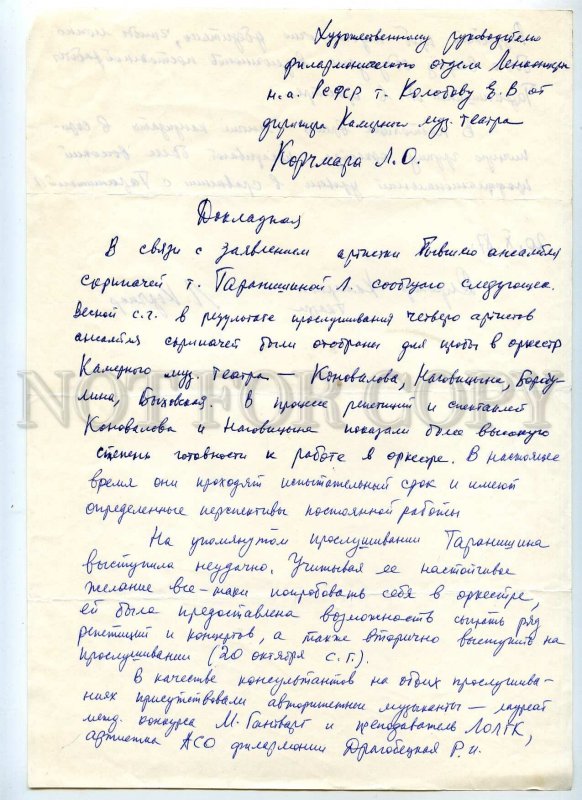 Художественному руководителю
филармонического отдела Ленконцерта
н.а. РСФСР т. Колобову Е.В от
директора Камерного муз. театра
Корчмара Л.О.
Докладная
В связи с заявлением артистки бывшего ансамбля
скрипачей т. Таранишиной Л. сообщаю следующее.
Весной с.г. в результате прослушивания четверо артистов
ансамбля скрипачей были отобраны для пробы в оркестр
Камерного муз. театра — Коновалова, Наговицына, Бороду-
лина, Быховская. В процессе репетиций и спектаклей
Коновалова и Наговицына показали более высокую
степень готовности к работе в оркестре. В настоящее
время они проходят испытательный срок и имеют
определенные перспективы постоянной работы
На упомянутом прослушивании Таранишина
выступила неудачно. Учитывая ее настойчивое
желание все-таки попробовать себя в оркестре,
ей была предоставлена возможность сыграть ряд
репетиций и концертов, а также вторично выступить на
прослушивании (20 октября с.г.).
В качестве консультантов на обоих прослушива-
ниях присутствовали авторитетные музыканты — лауреат
межд. конкурса М. Гантварг и преподаватель ЛОЛГК,
артистка АСО филармонии Драгобецкая Р.И.
NOT FOR COPY